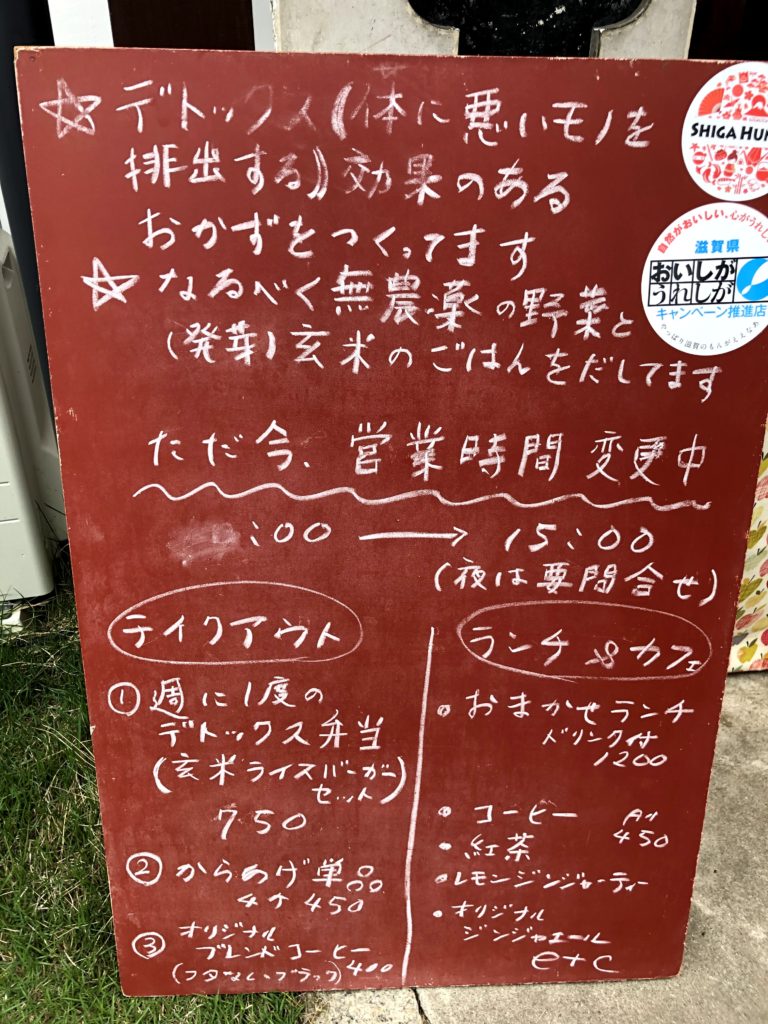 ☆デトックス(体に悪いモノを
排出する)効果のある
おかずをつくってます
☆なるべく無農薬の野菜と
(発芽)玄米のごはんをだしてます
ただ今、営業時間変更中
:00 → 15:00
(夜は要問合せ)
テイクアウト
①週に1度の
デトックス弁当
(玄米ライスバーガー
セット)
750
②からあげ単品
4ケ 450
③オリジナル
ブレンドコーヒー
(フタなし、ブラック) 400
ランチ&カフェ
・おまかせランチ
ドリンク付
1200
・コーヒー All
・紅茶 450
・レモンジンジャーティー
・オリジナル
ジンジャエール
etc
SHIGA HUN
自然がおいしい、心がうれし
滋賀県
おいしが
うれしが
キャンペーン推進店
やっぱり滋賀のもんがええなあ